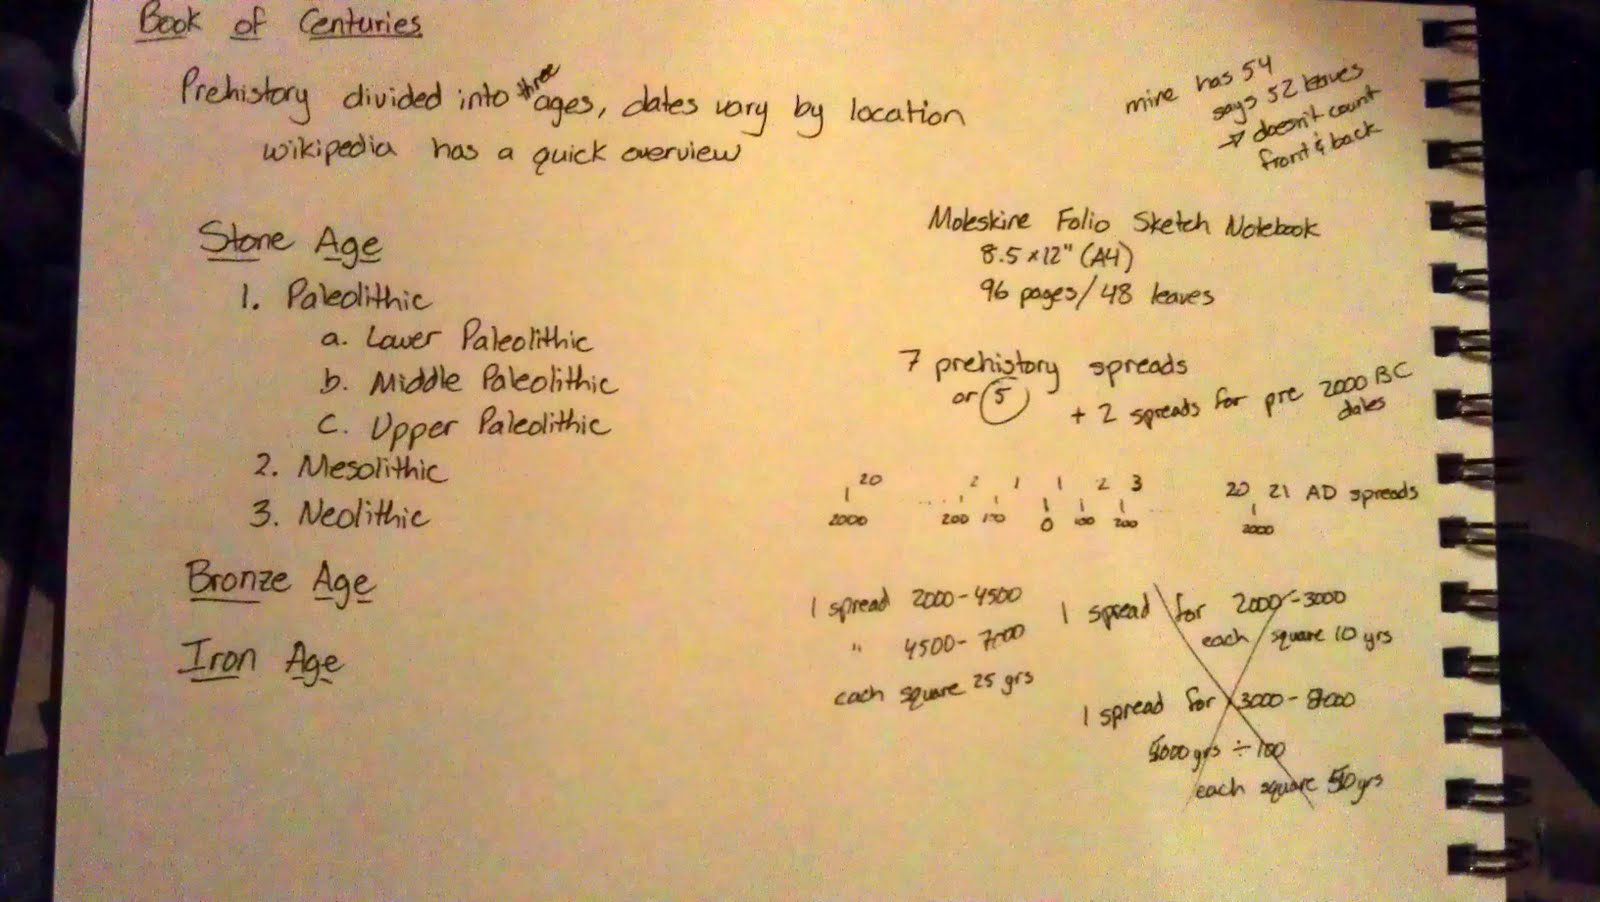 Book of Centuries
Prehistory divided into three ages, dates vary by location
wikipedia has a quick overview
mine has 54
says 52 leaves
→ doesn't count
front & back
Stone Age
1. Paleolithic
a. Lower Paleolithic
b. Middle Paleolithic
c. Upper Paleolithic
2. Mesolithic
3. Neolithic
Bronze Age
Iron Age
Moleskine Folio Sketch Notebook
8.5 x 12" (A4)
96 pages / 48 leaves
7 prehistory spreads
or 5 + 2 spreads for pre 2000 BC
dates
20 ... 2 1 1 2 3 ... 20 21 AD spreads
2000 200 100 0 100 200 2000
1 spread 2000 - 4500
" 4500 - 7000
each square 25 yrs
1 spread for 2000 - 3000
each square 10 yrs
1 spread for 3000 - 8000
5000 yrs ÷ 100
each square 50 yrs